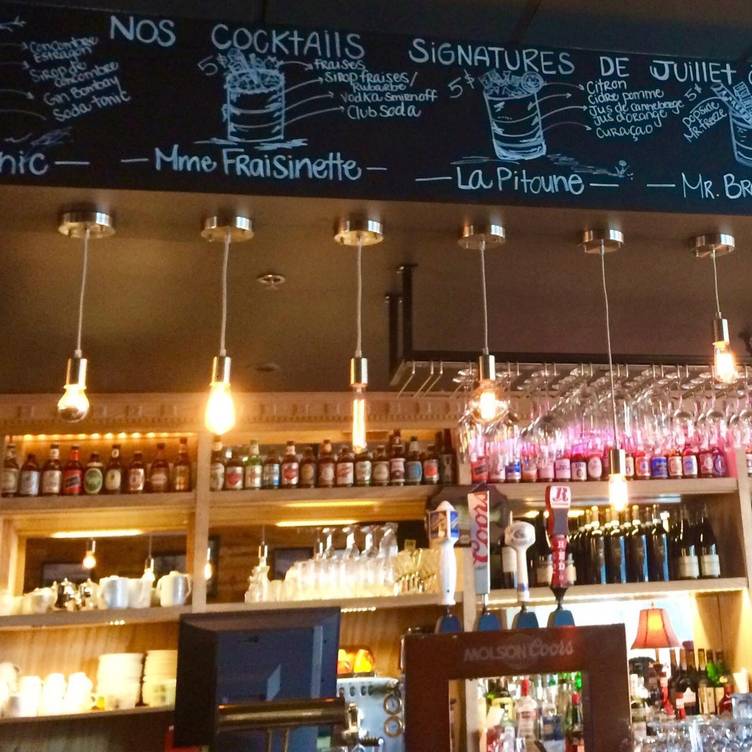 NOS COCKTAILS SIGNATURES DE JUILLET
Concombre
Estragon
Sirop de concombre
Gin Bombay
Soda-tonic
NIC
5$
Fraises
Sirop fraises/
Rhubarbe
Vodka Smirnoff
Club Soda
Mme Fraisinette
5$
Citron
Cidre pomme
Jus de canneberge
Jus d'orange
Curaçao
La Pitoune
5$
Popsicle
Mr. Freeze
MR. BR
Coors
MOLSON Coors